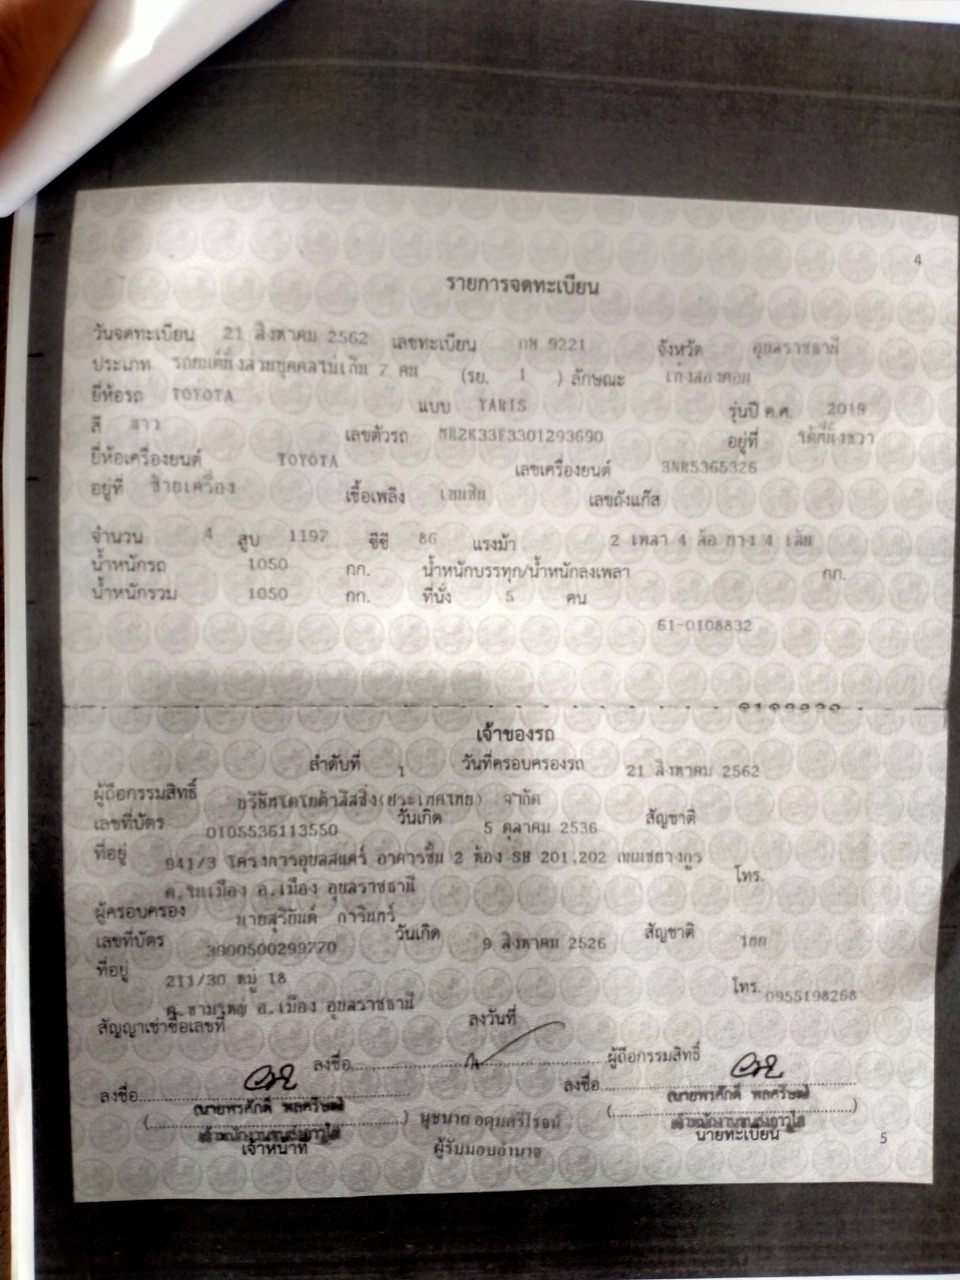 4
รายการจดทะเบียน
วันจดทะเบียน 21 สิงหาคม 2562 เลขทะเบียน กษ 9221 จังหวัด อุบลราชธานี
ประเภท รถยนต์นั่งส่วนบุคคลไม่เกิน 7 คน (รย. 1 ) ลักษณะ เก๋งสองตอน
ยี่ห้อรถ TOYOTA แบบ YARIS รุ่นปี ค.ศ. 2019
สี ขาว เลขตัวรถ MR2K33F3301293690 อยู่ที่ ใต้ที่นั่งขวา
ยี่ห้อเครื่องยนต์ TOYOTA เลขเครื่องยนต์ 3NR5365326
อยู่ที่ ซ้ายเครื่อง เชื้อเพลิง เบนซิน เลขถังแก๊ส
จำนวน 4 สูบ 1197 ซีซี 86 แรงม้า 2 เพลา 4 ล้อ ยาง 4 เส้น
น้ำหนักรถ 1050 กก. น้ำหนักบรรทุก/น้ำหนักลงเพลา กก.
น้ำหนักรวม 1050 กก. ที่นั่ง 5 คน
61-0108832
เจ้าของรถ
ลำดับที่ 1 วันที่ครอบครองรถ 21 สิงหาคม 2562
ผู้ถือกรรมสิทธิ์ บริษัทโตโยต้าลีสซิ่ง(ประเทศไทย) จำกัด
เลขที่บัตร 0105536113550 วันเกิด 5 ตุลาคม 2536 สัญชาติ
ที่อยู่ 941/3 โครงการอุบลสแควร์ อาคารชั้น 2 ห้อง SH 201,202 ถนนชยางกูร โทร.
ต.ในเมือง อ.เมือง อุบลราชธานี
ผู้ครอบครอง นายสุริยันต์ การินทร์
เลขที่บัตร 3900500299770 วันเกิด 9 สิงหาคม 2526 สัญชาติ ไทย
ที่อยู่ 211/30 หมู่ 18 โทร. 0955198268
ต.ขามใหญ่ อ.เมือง อุบลราชธานี
สัญญาเช่าซื้อเลขที่ ลงวันที่
ลงชื่อ ผู้ถือกรรมสิทธิ์
ลงชื่อ ลงชื่อ
(นายพรศักดิ์ พลศรีษฒ์ นายพรศักดิ์
( ) นุชนาถ อุดมศรีไรจน์ ( )
เจ้าหน้าที่ ผู้รับมอบอำนาจ นายทะเบียน
5